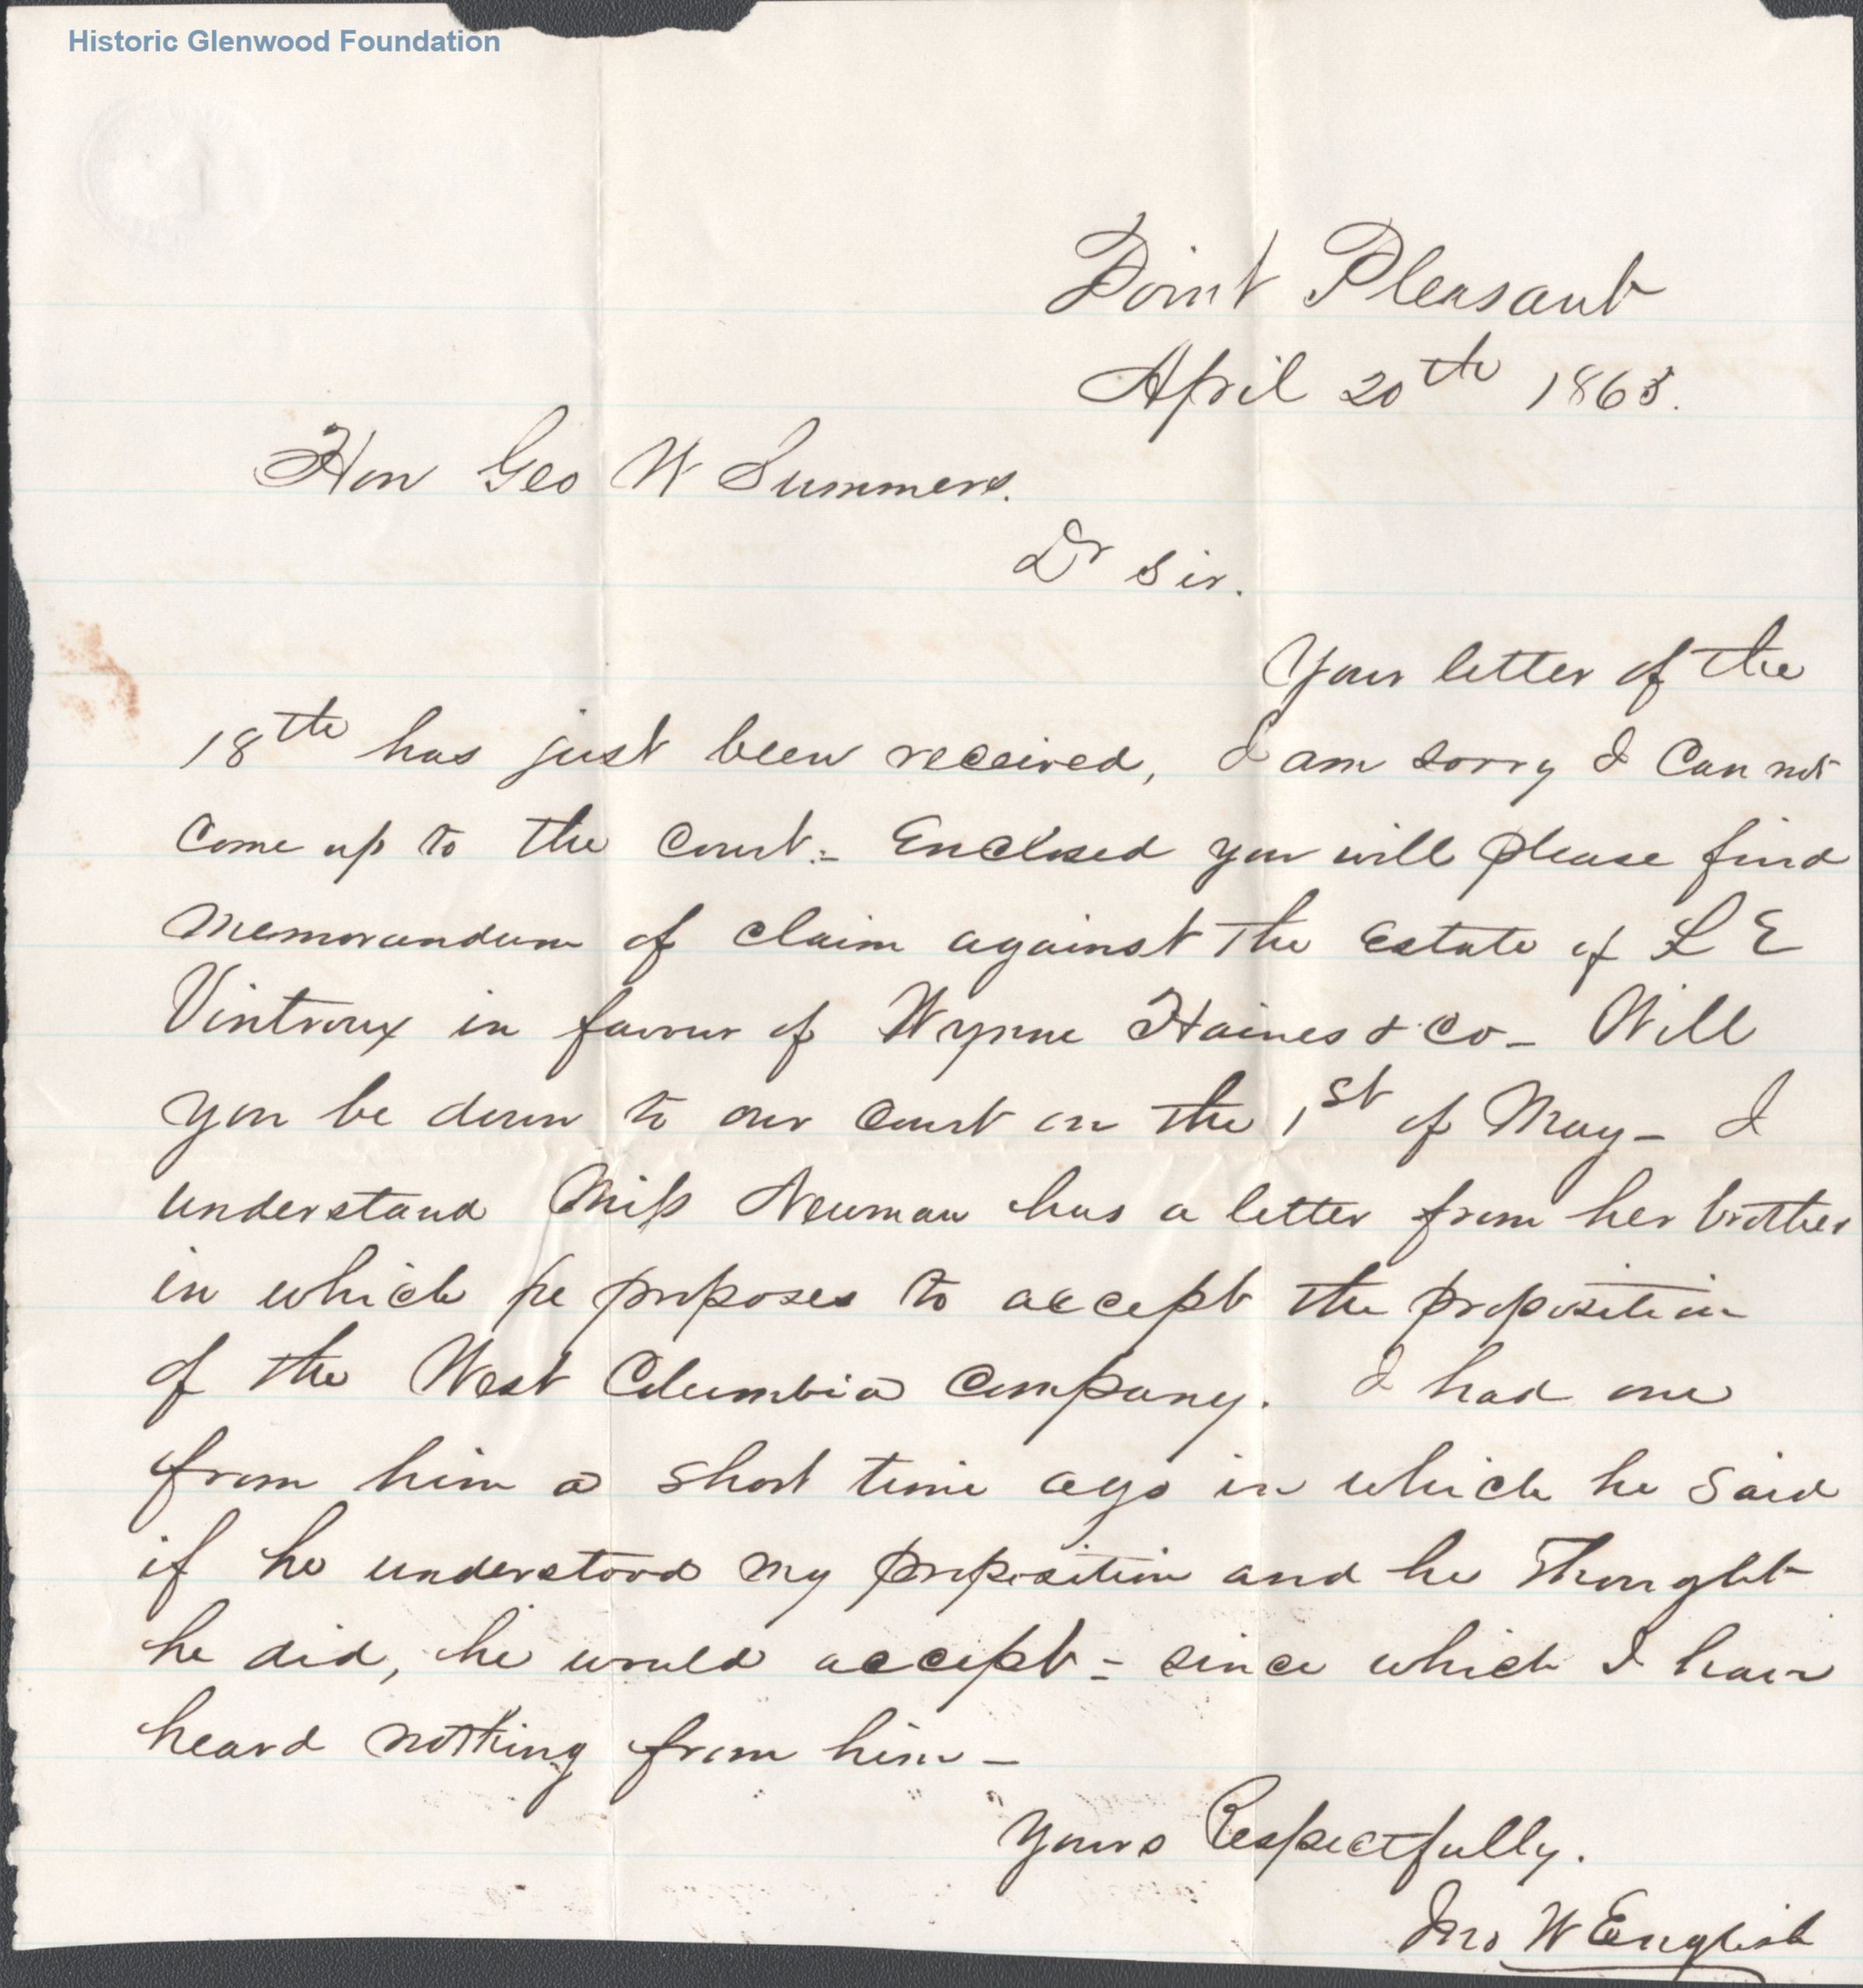 Historic Glenwood Foundation
Point Pleasant
April 20th 1865.
Hon Geo W Summers.
Dr Sir.
Your letter of the
18th has just been received, I am sorry I Can not
Come up to the Court.= Enclosed you will please find
Memorandum of claim against The Estate of L E
Vintroux in favour of Wynne Haines & Co- Will
you be down to our Court on the 1st of May- I
understand Miss Newman has a letter from her brother
in which he proposes to accept the proposition
of the West Columbia Company. I had one
from him a short time ago in which he said
if he understood my proposition and he Thought
he did, he would accept = since which I have
heard nothing from him-
Yours Respectfully.
Jno W English